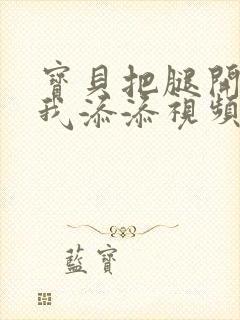 寶貝把腿開
我添添視頻
藍寶